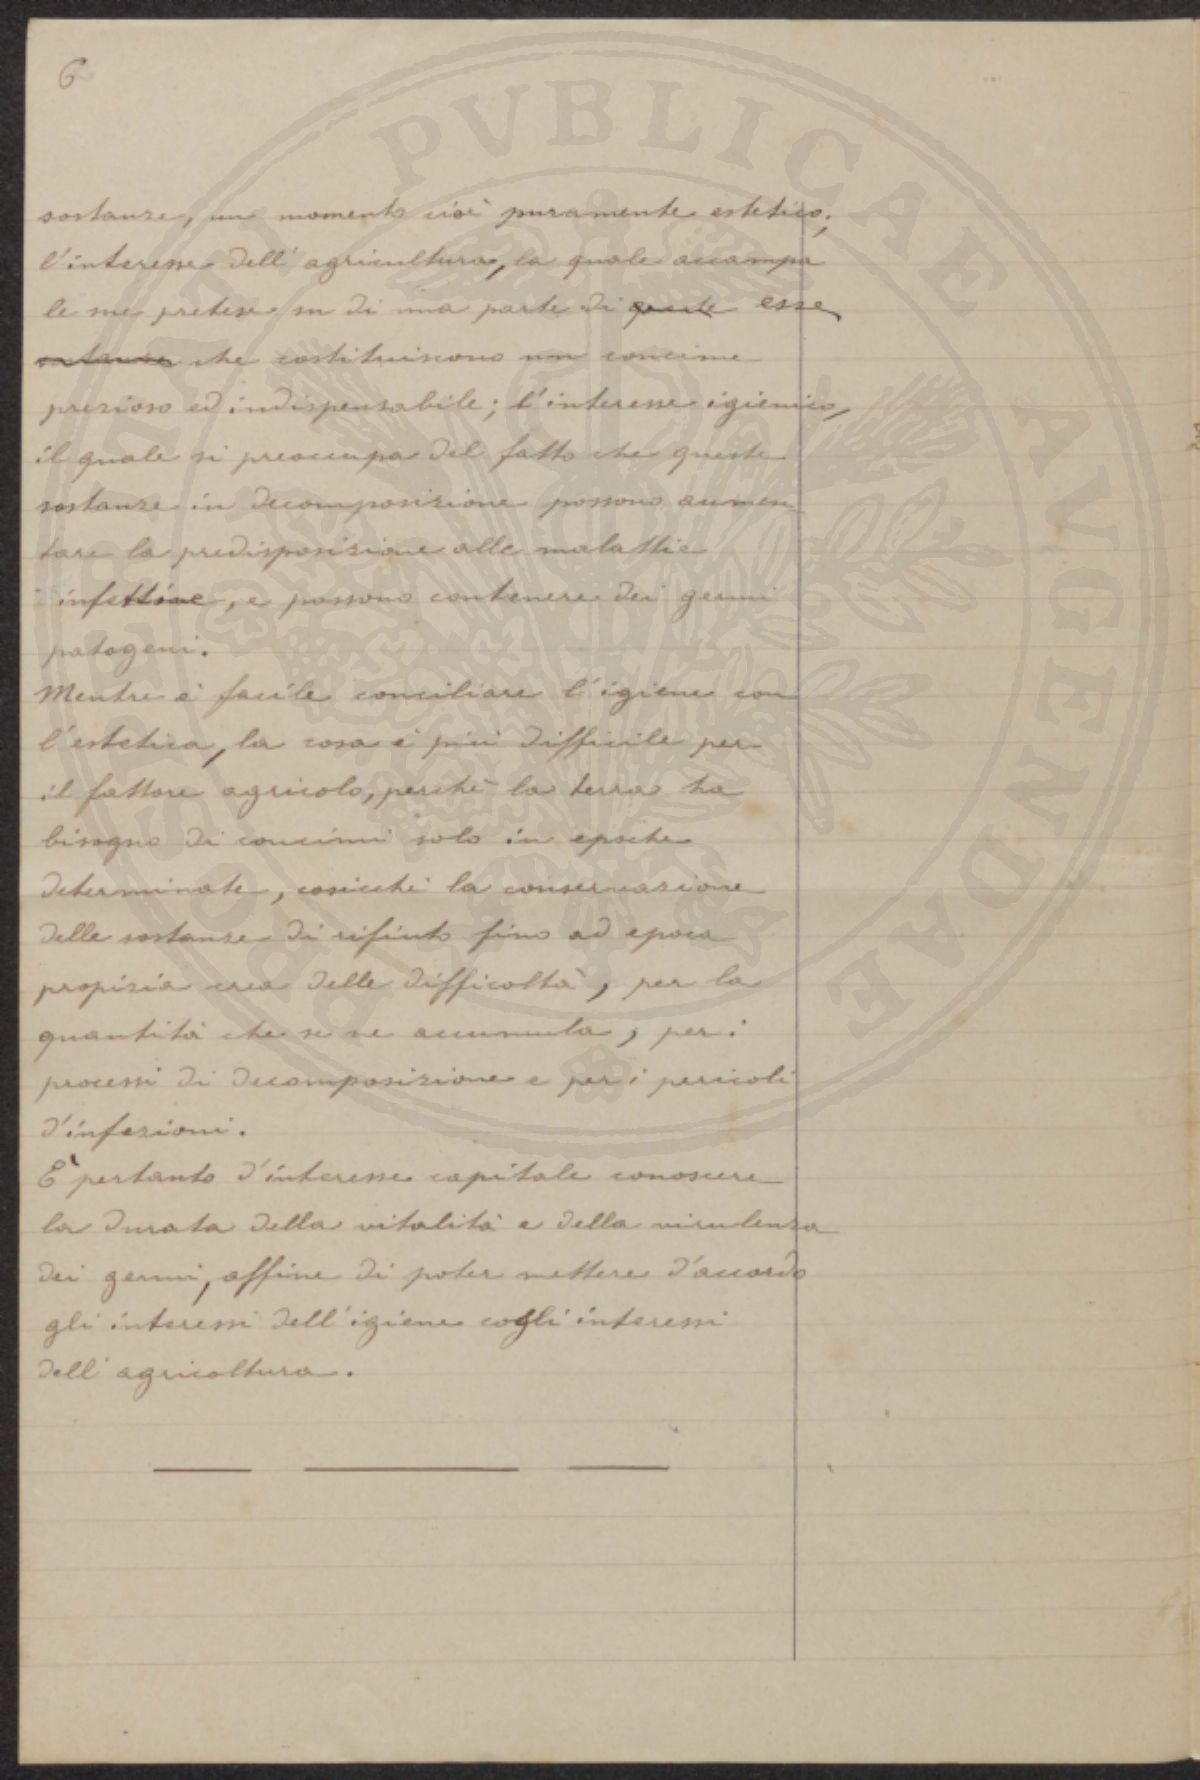 6
sostanze, un momento cioè puramente estetico;
l'interesse dell'agricultura, la quale accampa
le sue pretese su di una parte di queste esse
sostanze che costituiscono un concime
prezioso ed indispensabile; l'interesse igienico,
il quale si preoccupa del fatto che queste
sostanze in decomposizione possono aumen
tare la predisposizione alle malattie
infettive, e possono contenere dei germi
patogeni.
Mentre è facile conciliare l'igiene con
l'estetica, la cosa è più difficile per
il fattore agricolo, perchè la terra ha
bisogno di concimi solo in epoche
determinate, cosicchè la conservazione
delle sostanze di rifiuto fino ad epoca
propizia crea delle difficoltà, per la
quantità che se ne accumula, per i
processi di decomposizione e per i pericoli
d'infezioni.
È pertanto d'interesse capitale conoscere
la durata della vitalità e della virulenza
dei germi, affine di poter mettere d'accordo
gli interessi dell'igiene cogli interessi
dell'agricoltura.